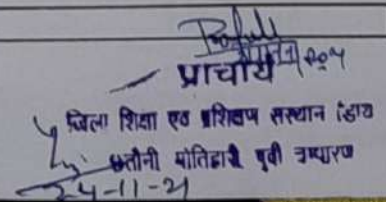 प्राचार्य
जिला शिक्षा एवं प्रशिक्षण संस्थान (डायट
छतौनी मोतिहारी पूर्वी चम्पारण
24-11-21